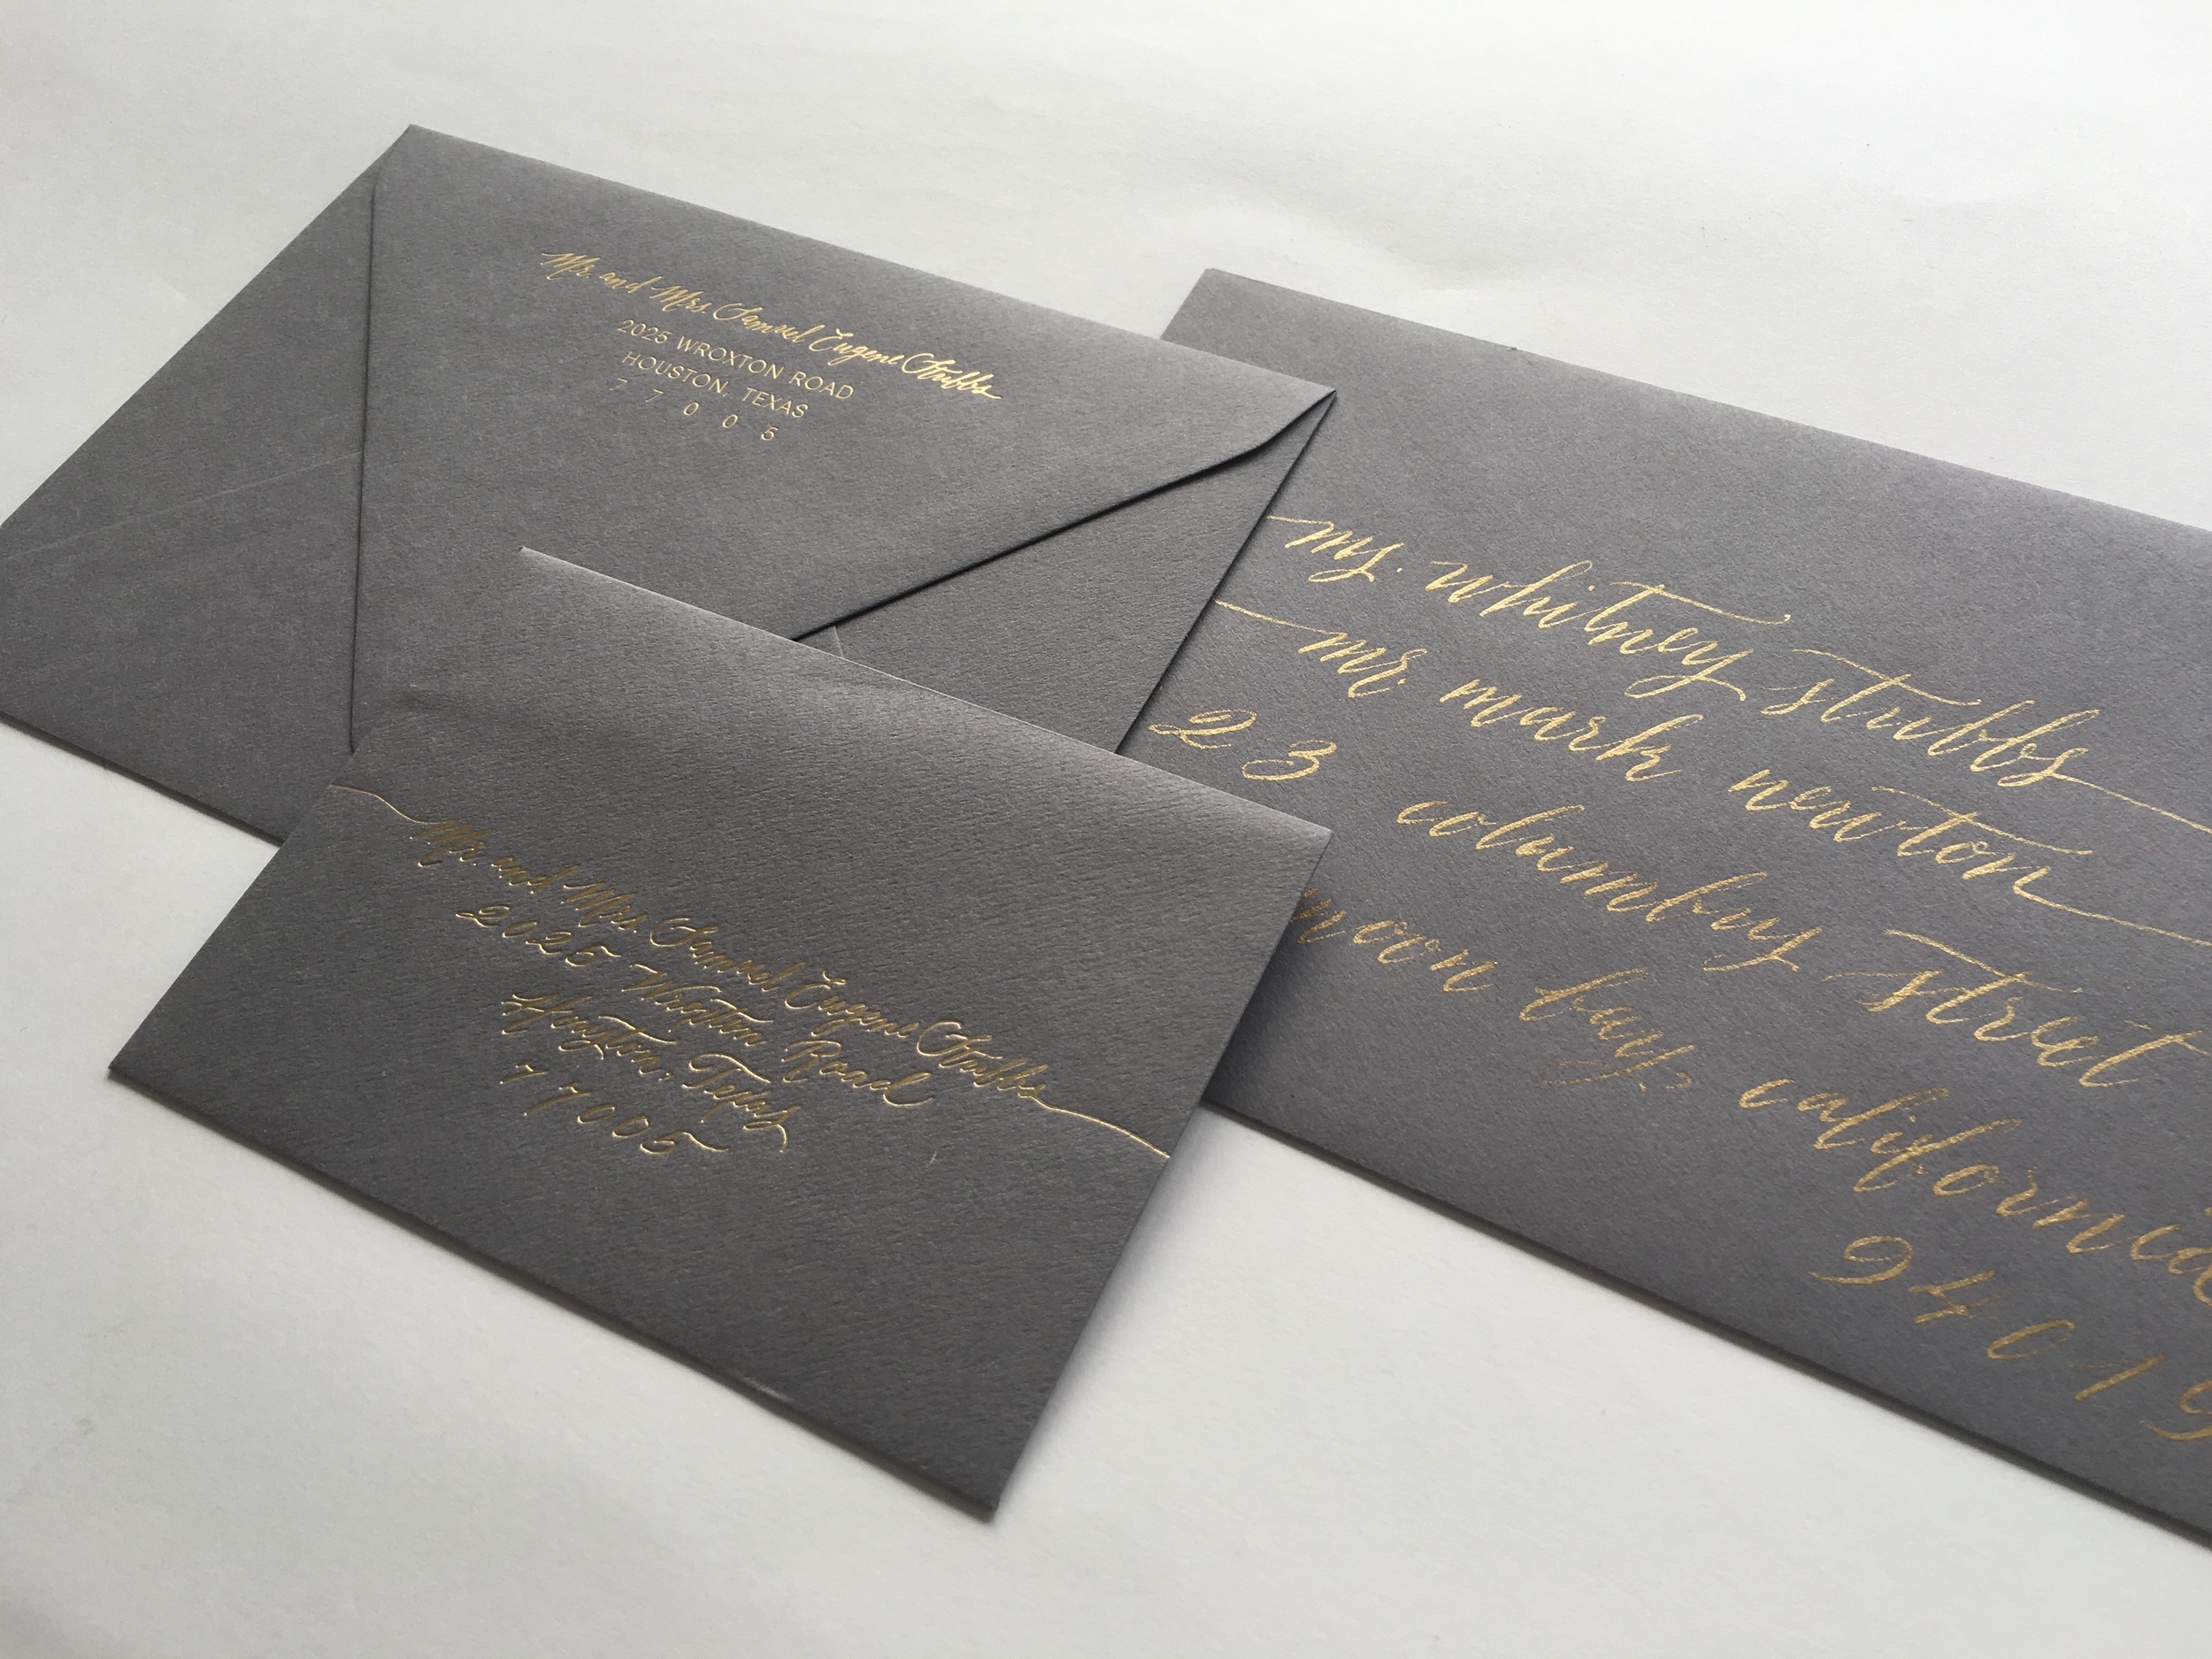 Mr. and Mrs. Samuel Eugene Stubbs
2025 WROXTON ROAD
HOUSTON, TEXAS
7 7 0 0 5
Mr. and Mrs. Samuel Eugene Stubbs
2025 Wroxton Road
Houston, Texas
77005
ms. whitney stubbs
mr. mark newton
23 columbus street
moon bay, california
94019